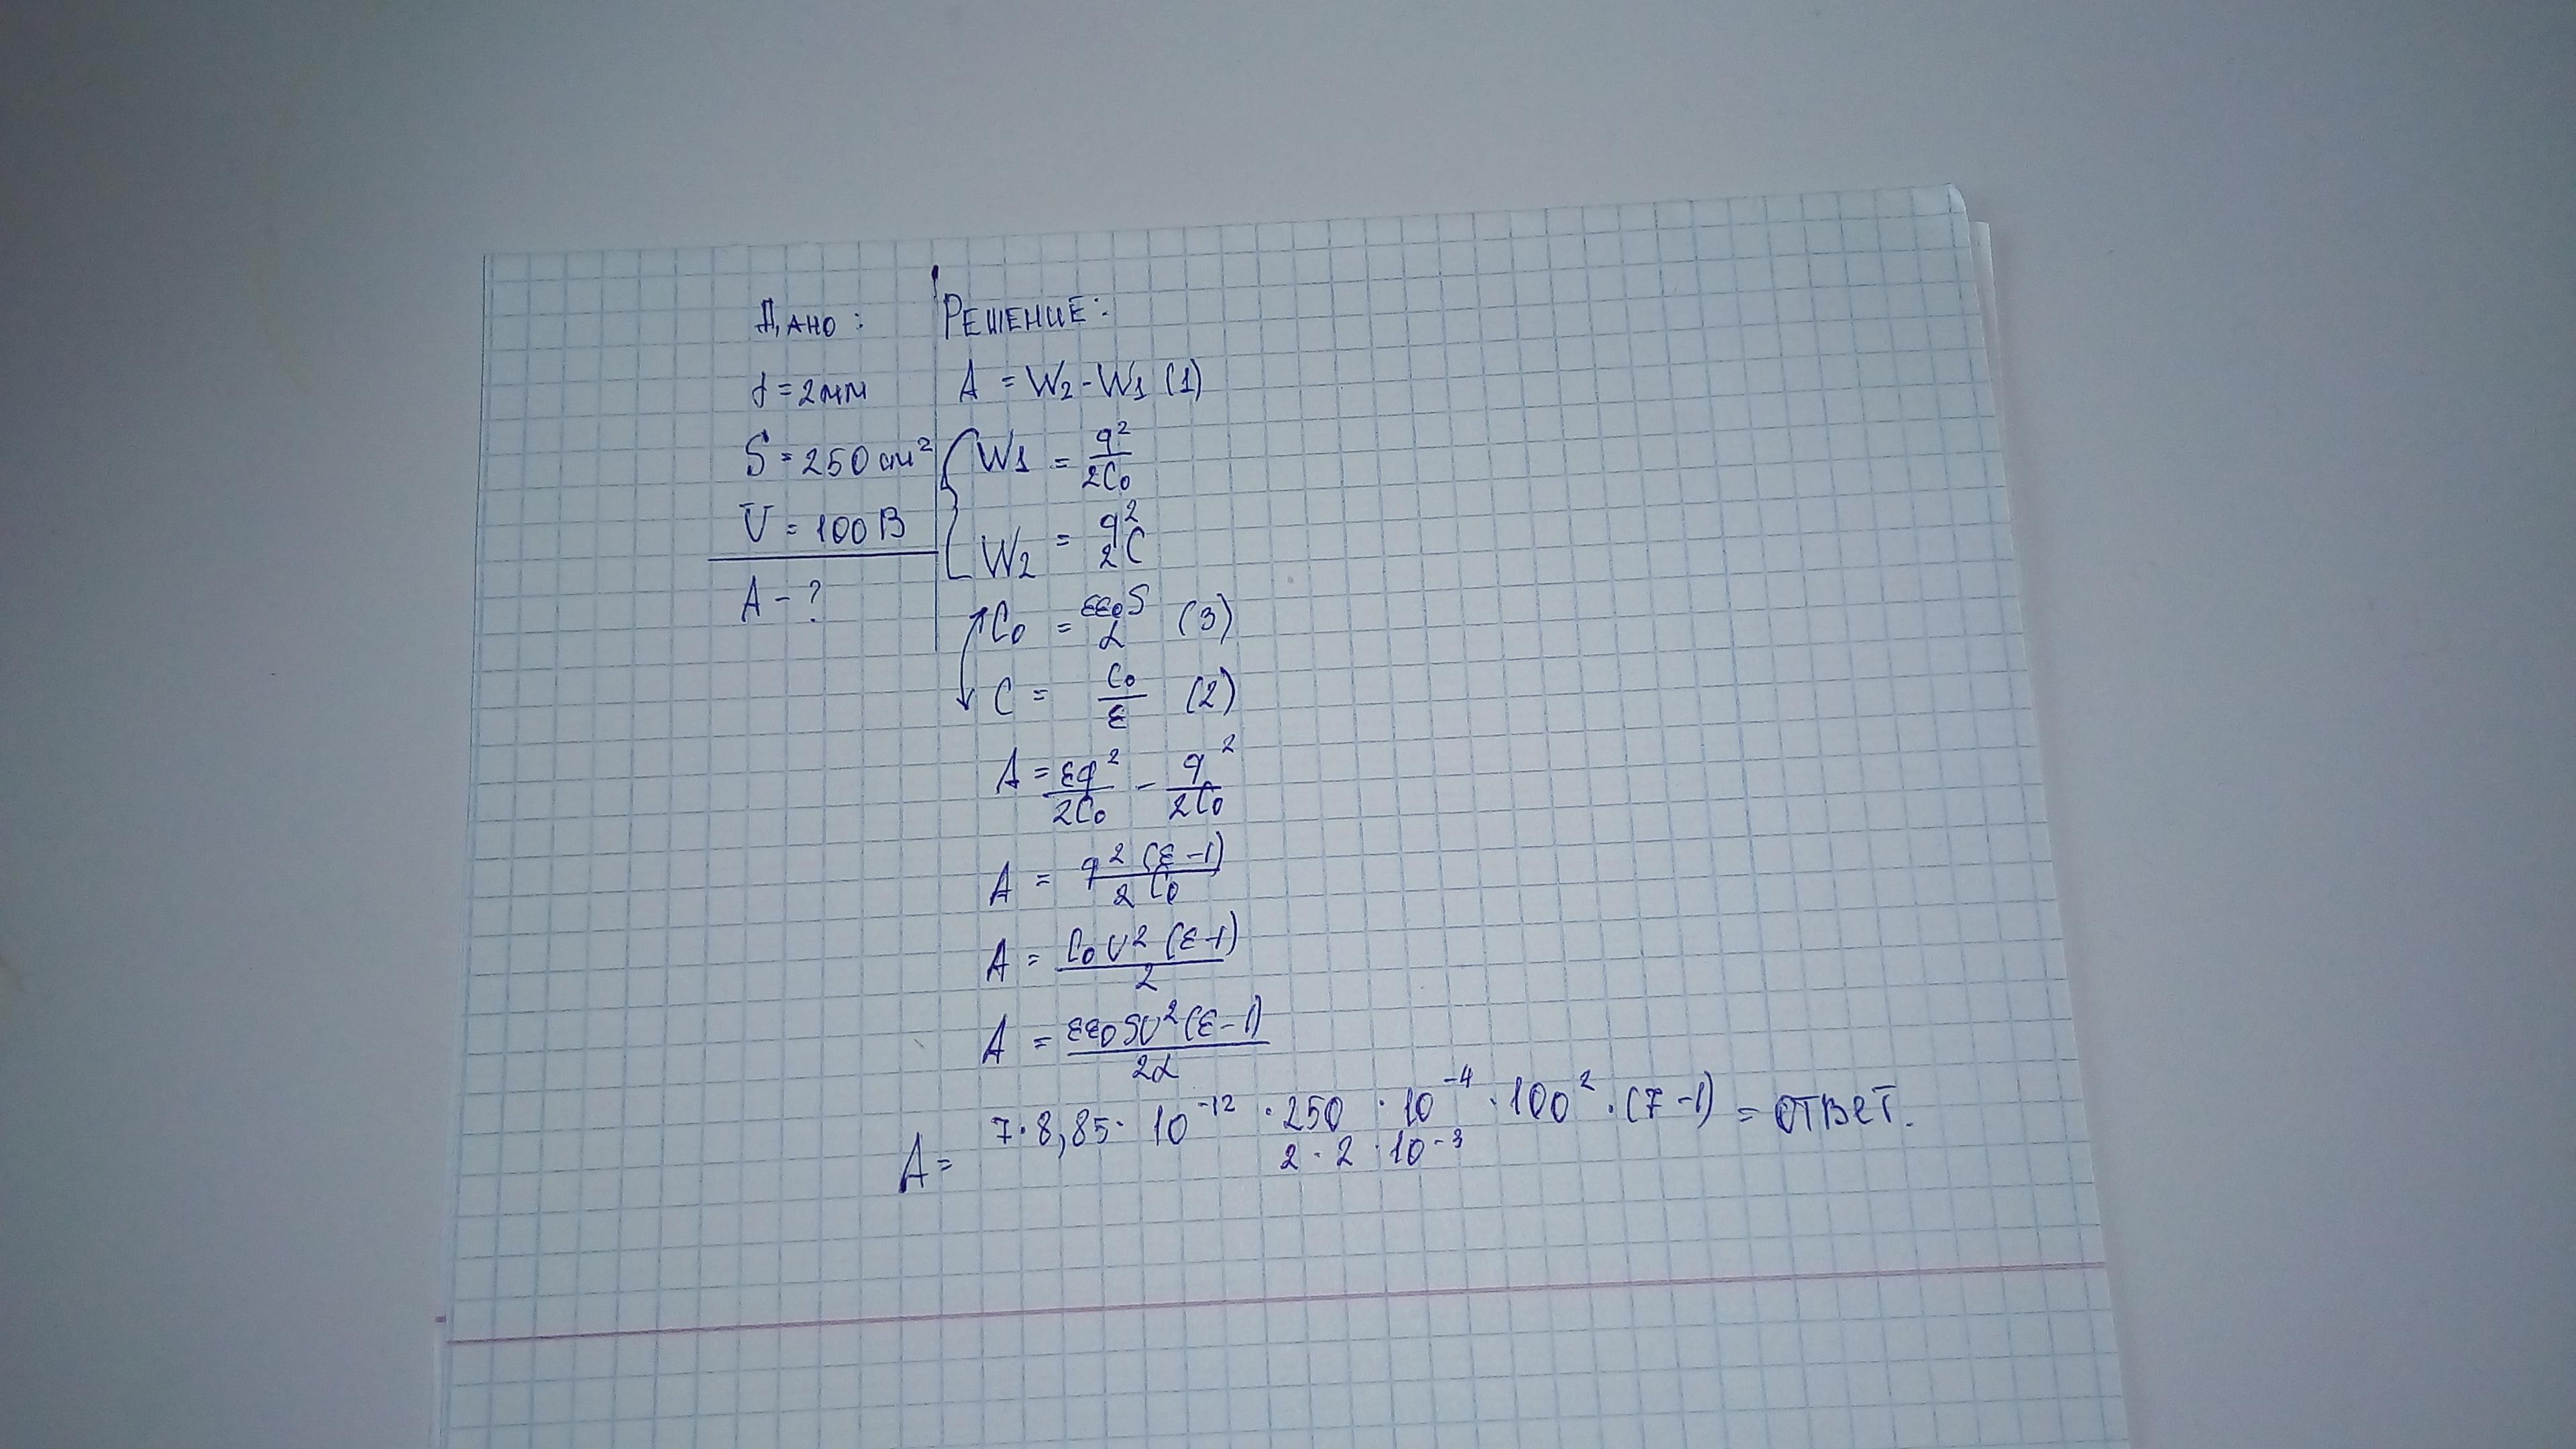 Дано:
d = 2 мм
S = 250 см²
U = 100 В
A - ?
РЕШЕНИЕ:
A = W2 - W1 (1)
W1 = q² / 2C0
W2 = q² / 2C
C0 = εε0S / d (3)
C = C0 / ε (2)
A = εq² / 2C0 - q² / 2C0
A = q² (ε - 1) / 2C0
A = C0 U² (ε - 1) / 2
A = εε0 S U² (ε - 1) / 2d
A = 7 · 8,85 · 10⁻¹² · 250 · 10⁻⁴ · 100² · (7 - 1) / 2 · 2 · 10⁻³ = ответ.